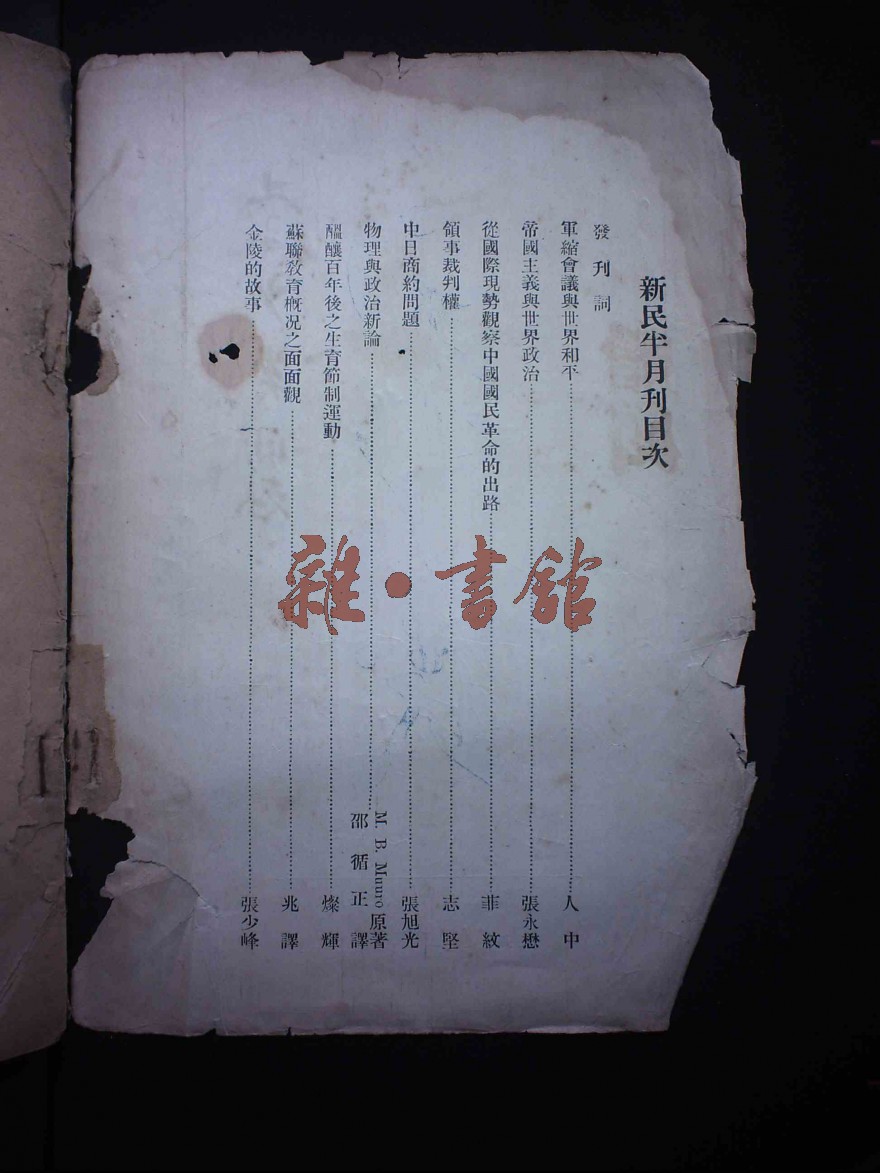 新民半月刊目次
發刊詞
軍縮會議與世界和平……人中
帝國主義與世界政治……張永懋
從國際現勢觀察中國國民革命的出路……菲紋
領事裁判權……志堅
中日商約問題……張旭光
物理與政治新論……M. B. Munro 原著
邵循正譯
醞釀百年後之生育節制運動……燦輝
蘇聯教育概況之面面觀……兆譯
金陵的故事……張少峰
雜·書館